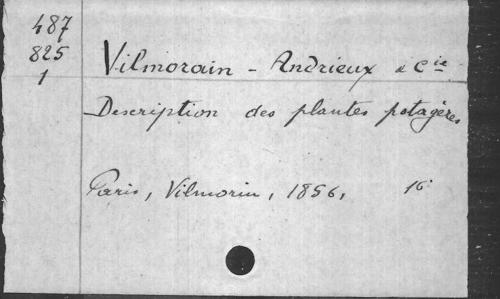 487
825
1
Vilmorain - Andrieux & Cie
Description des plantes potagères
Paris, Vilmorin, 1856, 16°